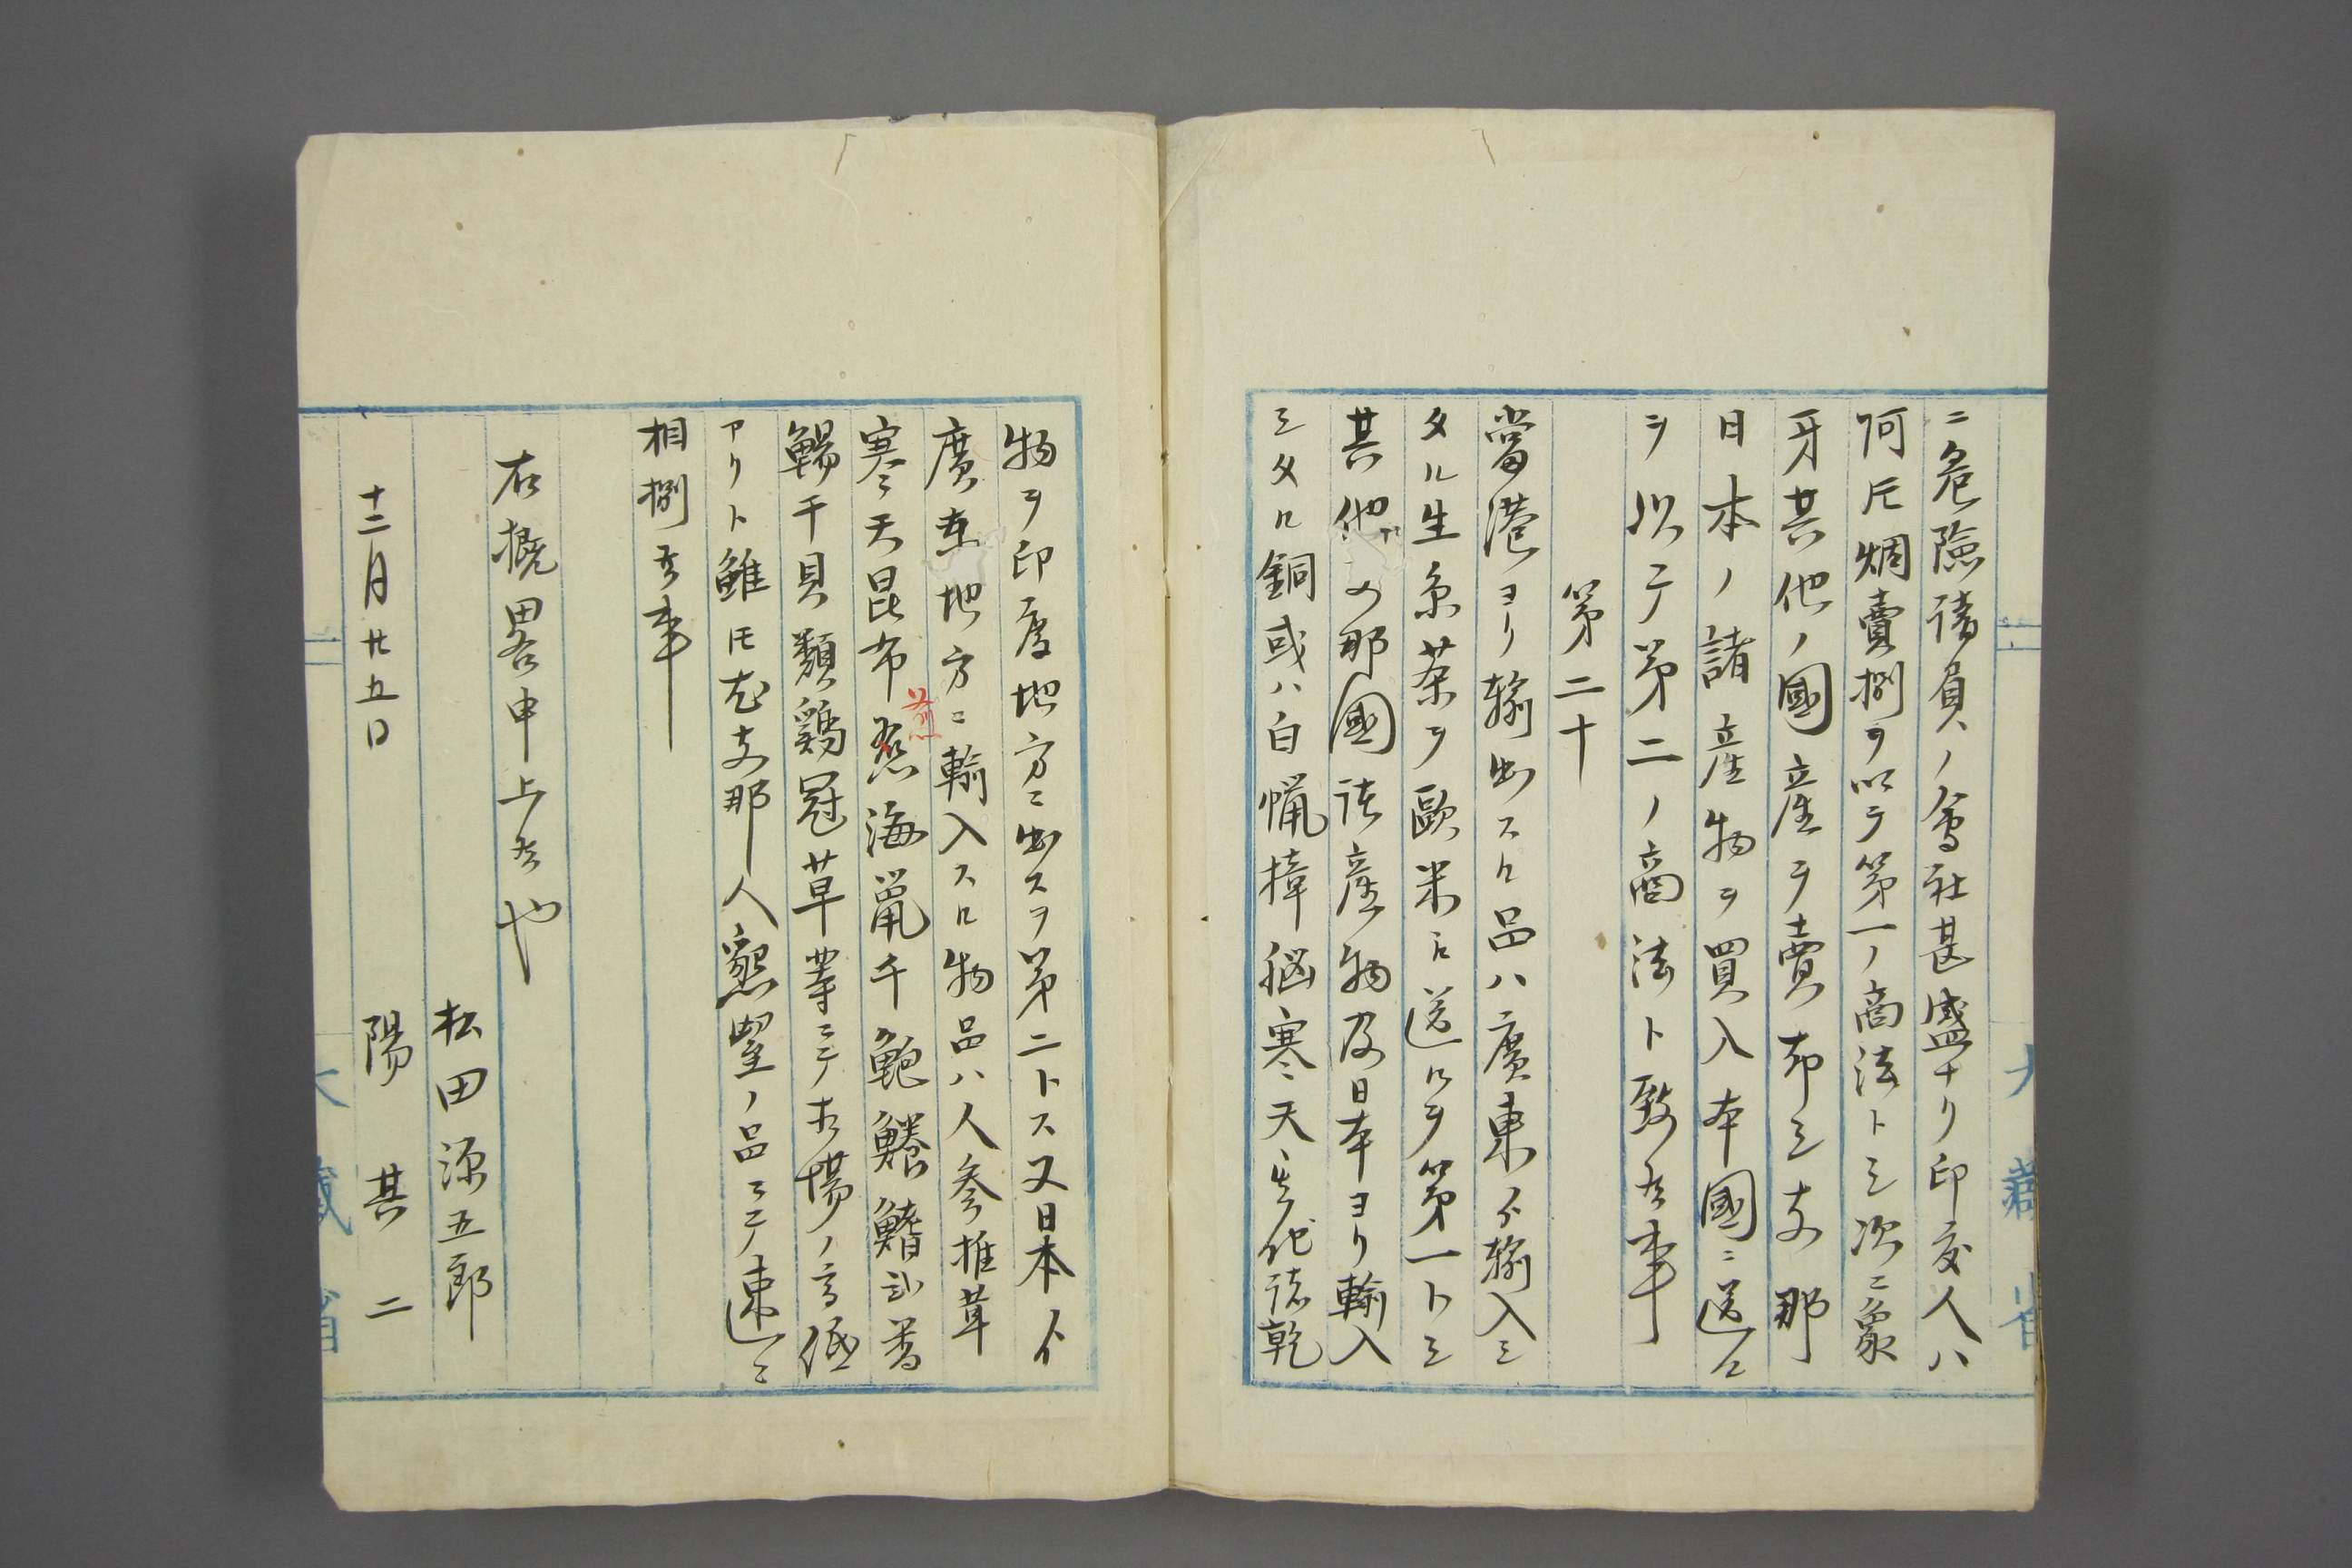 ニ危險請負ノ會社甚盛ナリ印度人ハ
阿片烟賣捌ヲ以テ第一ノ商法トシ次ニ象
牙其他ノ國産ヲ賣却シ支那
日本ノ諸産物ヲ買入本國ニ送ル
ヲ以テ第二ノ商法ト致候事
第二十
當港ヨリ輸出スル品ハ廣東ゟ輸入シ
タル生糸茶ヲ歐米ニ送ルヲ第一トシ
其他支那國諸産物及日本ヨリ輸入
シタル銅或ハ白蝋樟脳寒天其他諸乾
物ヲ印度地方ニ出スヲ第二トス又日本ゟ
廣東地方ニ輸入スル物品ハ人参椎茸
寒天昆布煎海鼠干鮑鱶鰭
鯣干貝類鶏冠草等ニテ相場ノ高低
アリト雖𪜈支那人懇望ノ品ニテ速ニ
相捌候事
右概畧申上候也
松田源五郎
十二月廿五日 陽其二
大藏省